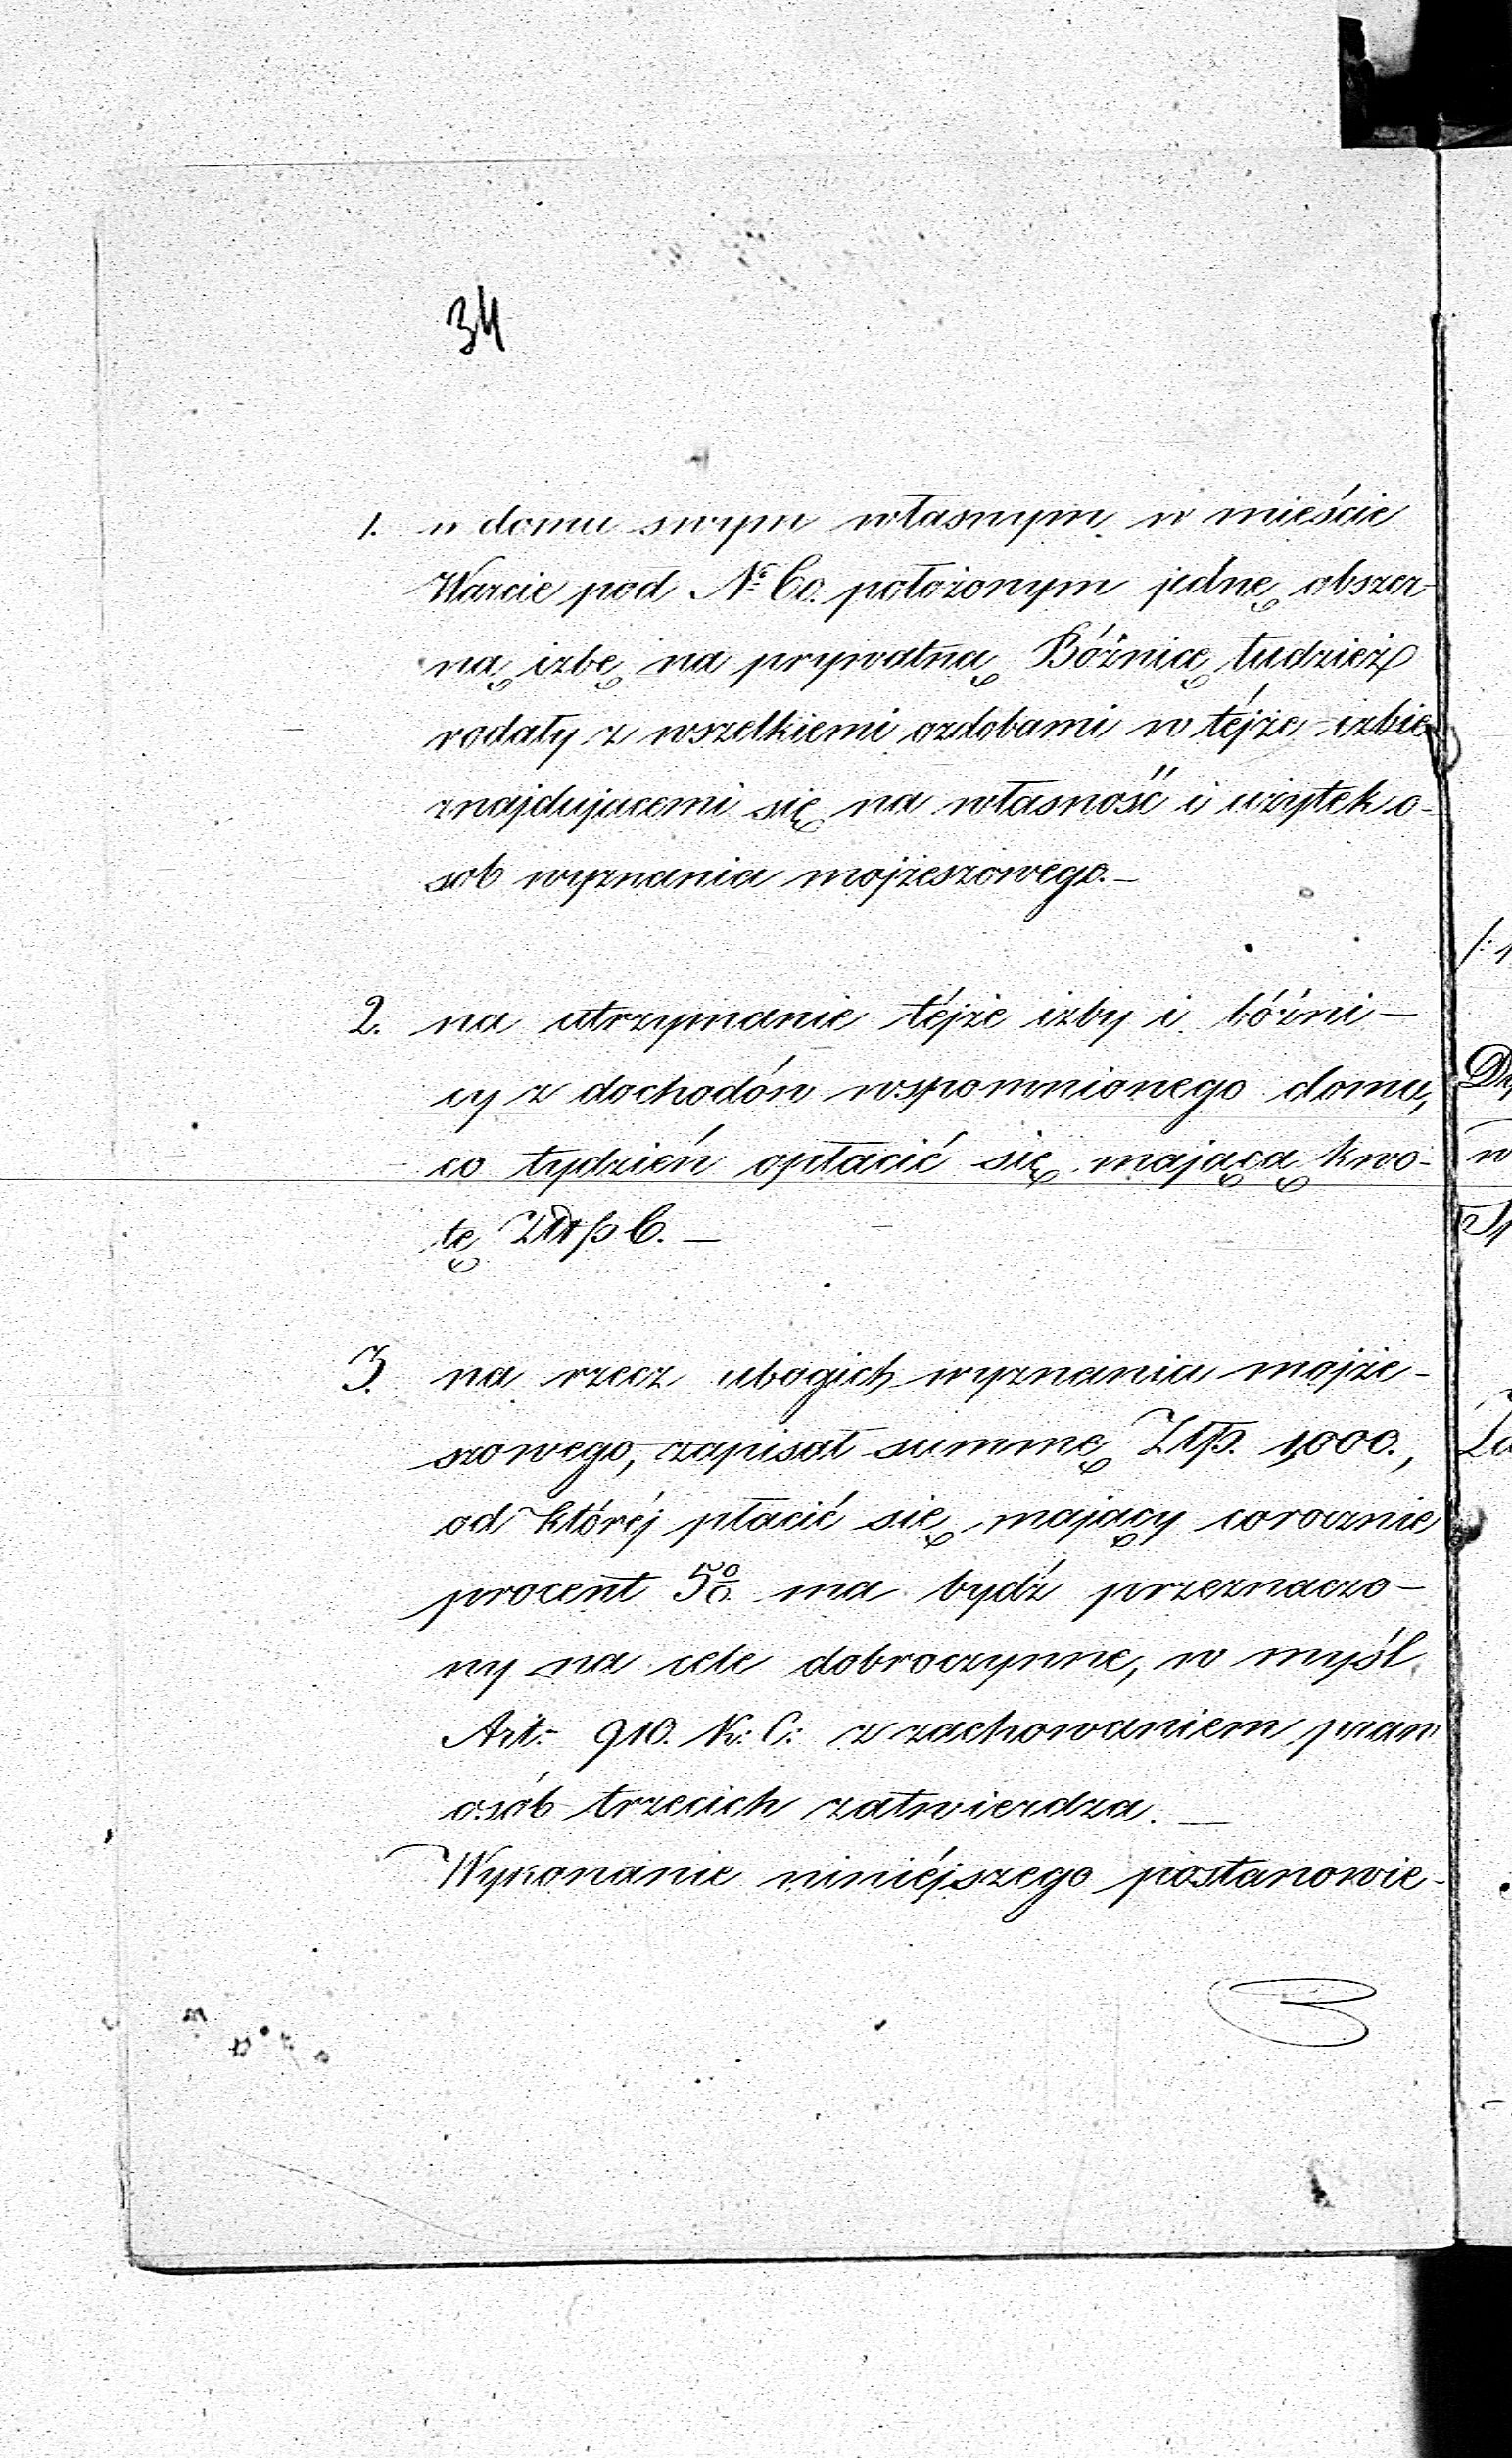 34
1. w domu swym własnym w mieście
Warcie pod № 60. położonym jednę obszer-
ną izbę na prywatną Bóżnicę tudzież
rodały z wszelkiemi ozdobami w téjże izbie
znajdującemi się na własność i użytek o-
sob wyznania mojżeszowego.—
2. na utrzymanie téjże izby i bóżni-
cy z dochodów wspomnionego domu,
co tydzień opłacić się mającą kwo-
tę Złp 6.—
3. na rzecz ubogich wyznania mojże-
szowego, zapisał summę Złp. 1,000.,
od któréj płacić się mający corocznie
procent 5% ma bydź przeznaczo-
ny na cele dobroczynne, w myśl
Art: 910. K: C: z zachowaniem praw
osób trzecich zatwierdza.—
Wykonanie niniéjszego postanowie-